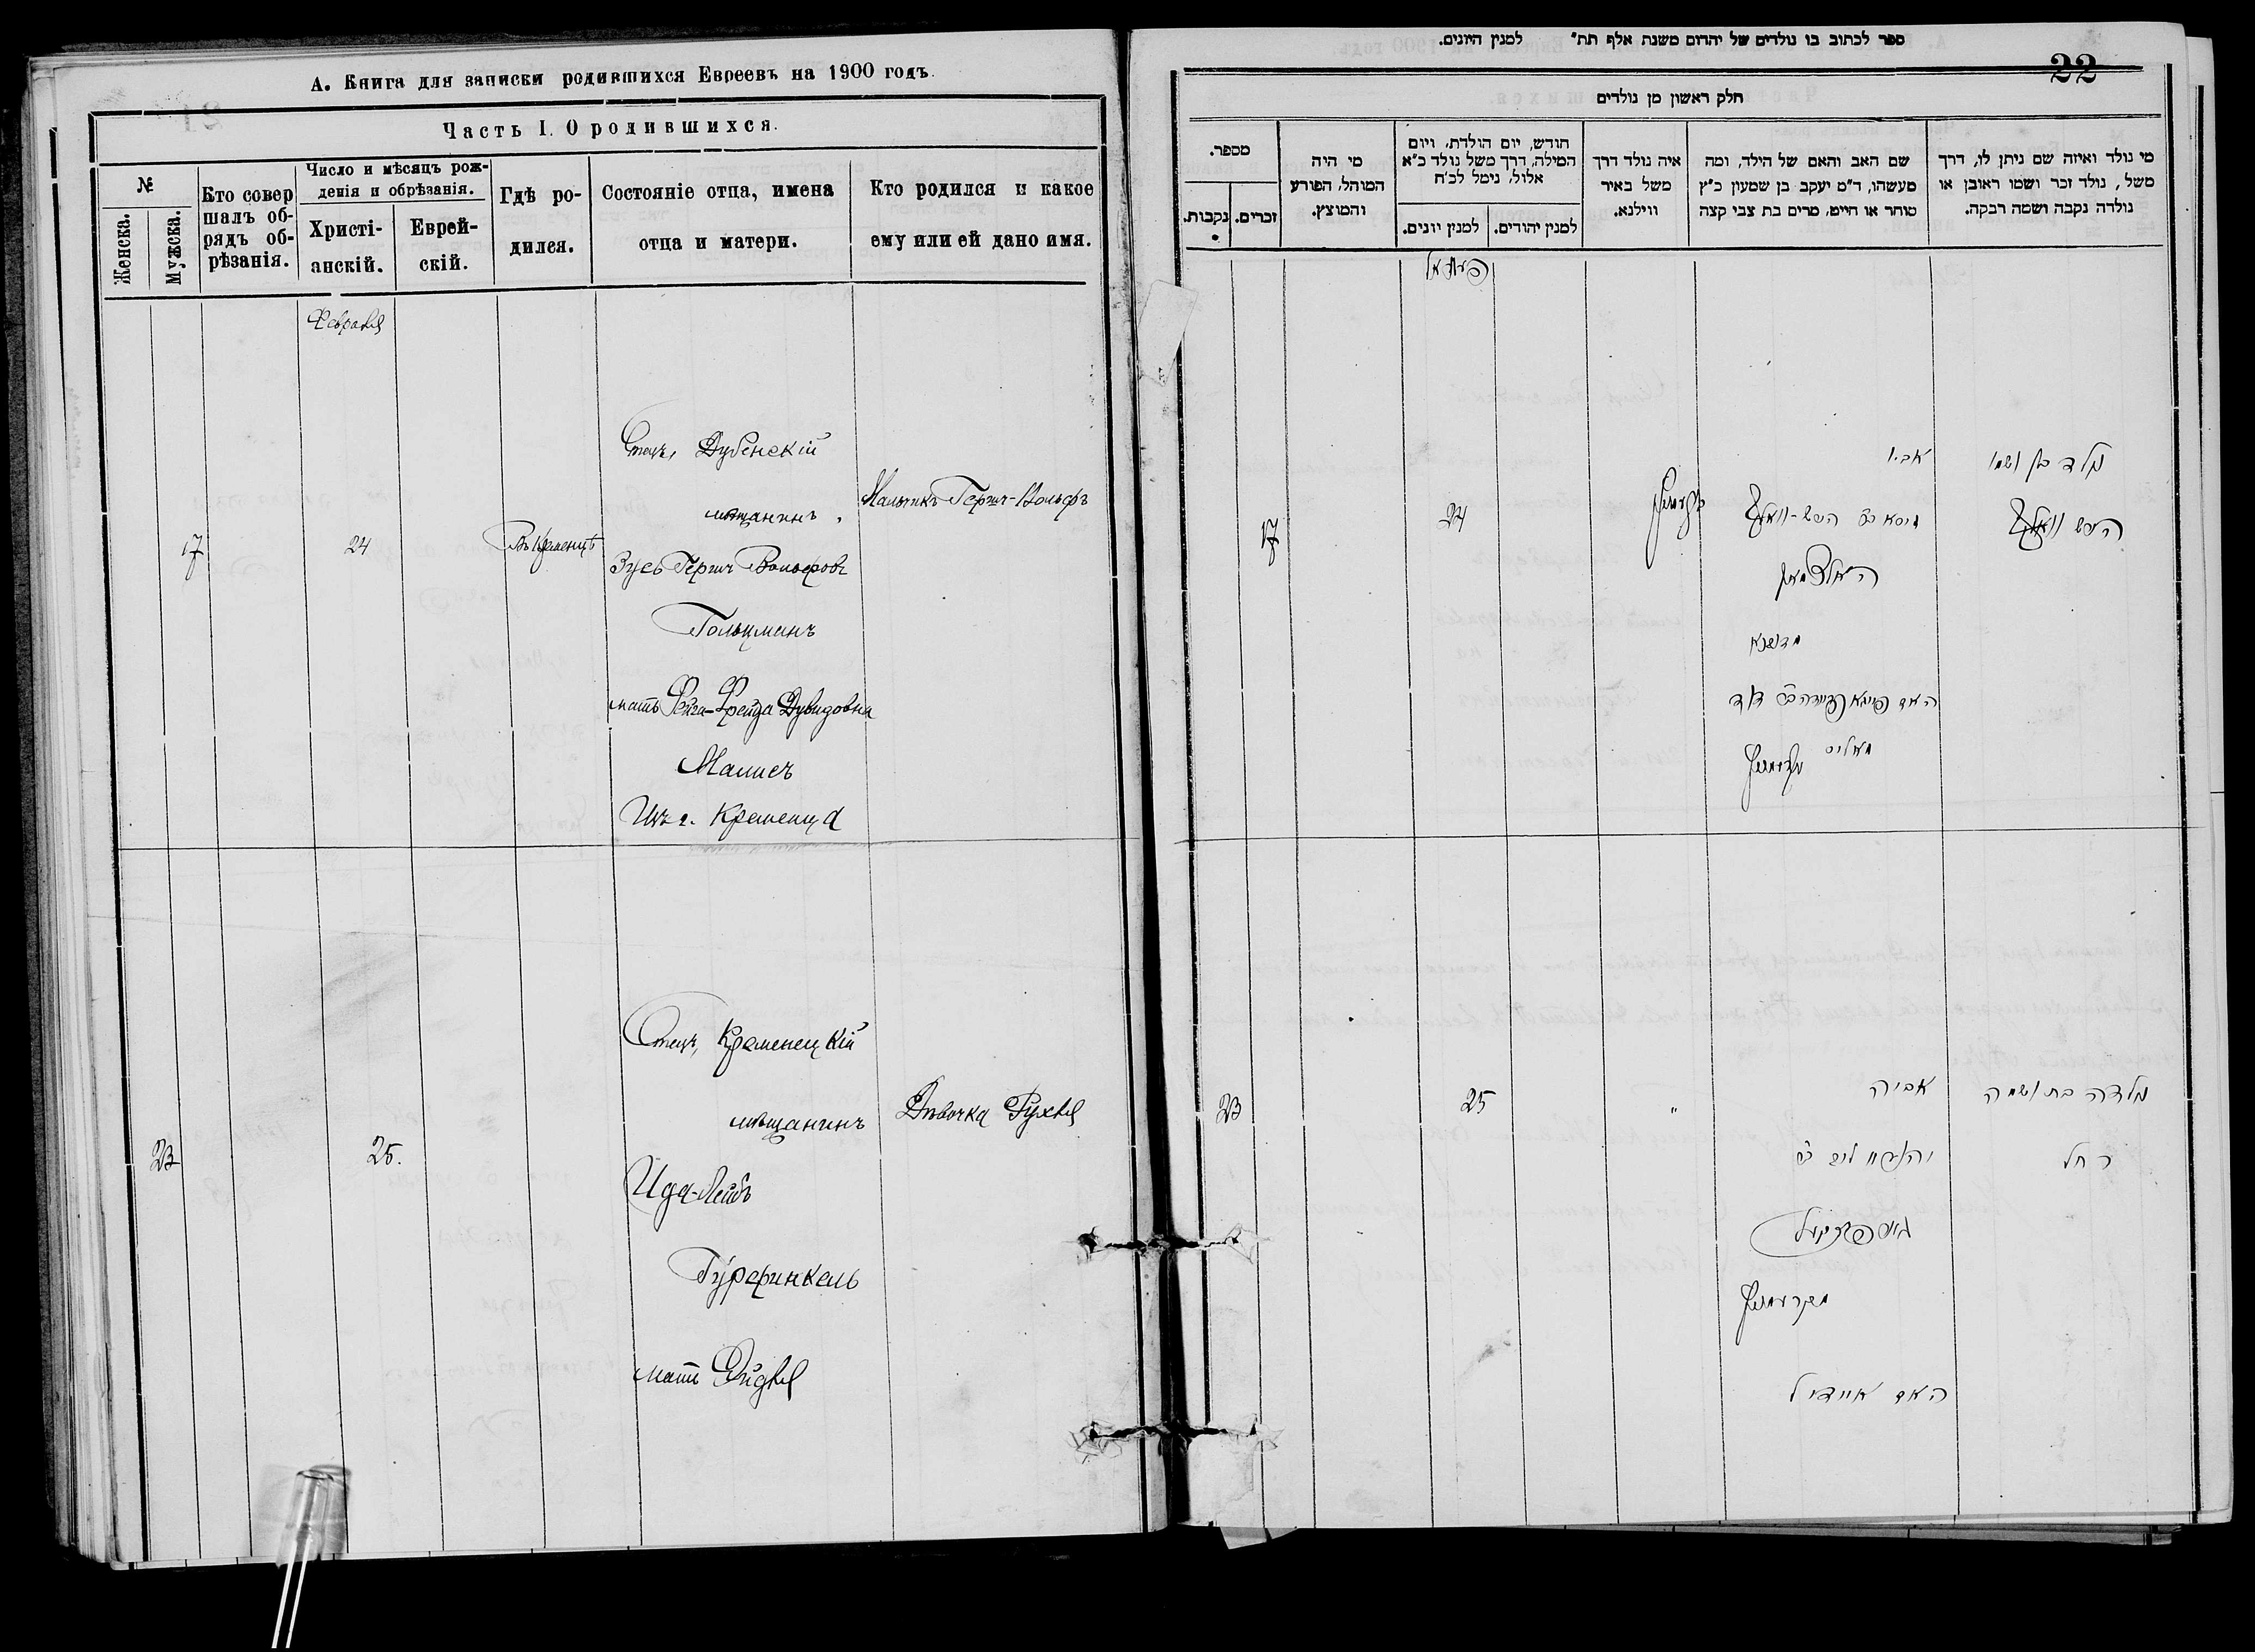 А. Книга для записки родившихся Евреевъ на 1900 годъ.
Часть I. О родившихся.
№
Женска.
Мужска.
Кто совер
шалъ об-
рядъ об-
рѣзанія.
Число и мѣсяцъ рож-
денія и обрѣзанія.
Христі-
анскій.
Еврей-
скій.
Гдѣ ро-
дился.
Состояніе отца, имена
отца и матери.
Кто родился и какое
ему или ей дано имя.
Февраля
17
24
Въ Кременцѣ
Отецъ, Дубенскій
мѣщанинъ,
Зусь Герш Вольфовъ
Гольцманъ
мать Фейга-Фрейда Дувидовна
Малисъ
Изъ г. Кременца
Мальчикъ Герш-Вольфъ
23
25.
Отецъ, Кременецкій
мѣщанинъ
Ида-Лейбъ
Гурфинкель
мать Эйдля
Дѣвочка Рухля
ספר לכתוב בו נולדים של יהדום משנת אלף תת" למנין היונים.
22
חלק ראשון מן נולדים
מספר.
נקבות.
זכרים.
מי היה
המוהל, הפורע
והמוצץ.
חודש, יום הולדת, ויום
המילה, דרך משל נולד כ"א
אלול, נימל לכ"ח
למנין יונים.
למנין יהודים.
איה נולד דרך
משל באיר
ווילנא.
שם האב והאם של הילד, ומה
מעשהו, ד"מ יעקב בן שמעון כ"ץ
סוחר או חייט, מרים בת צבי קצה
מי נולד ואיזה שם ניתן לו, דרך
משל, נולד זכר ושמו ראובן או
נולדה נקבה ושמה רבקה.
17
24
אביו
האלצמאן
מדובנא
מאליס
נולד בן ושמו
הירש וואלף
23
25
"
אביה
מקרעמניץ
האם איידיל
נולדה בת ושמה
רחל